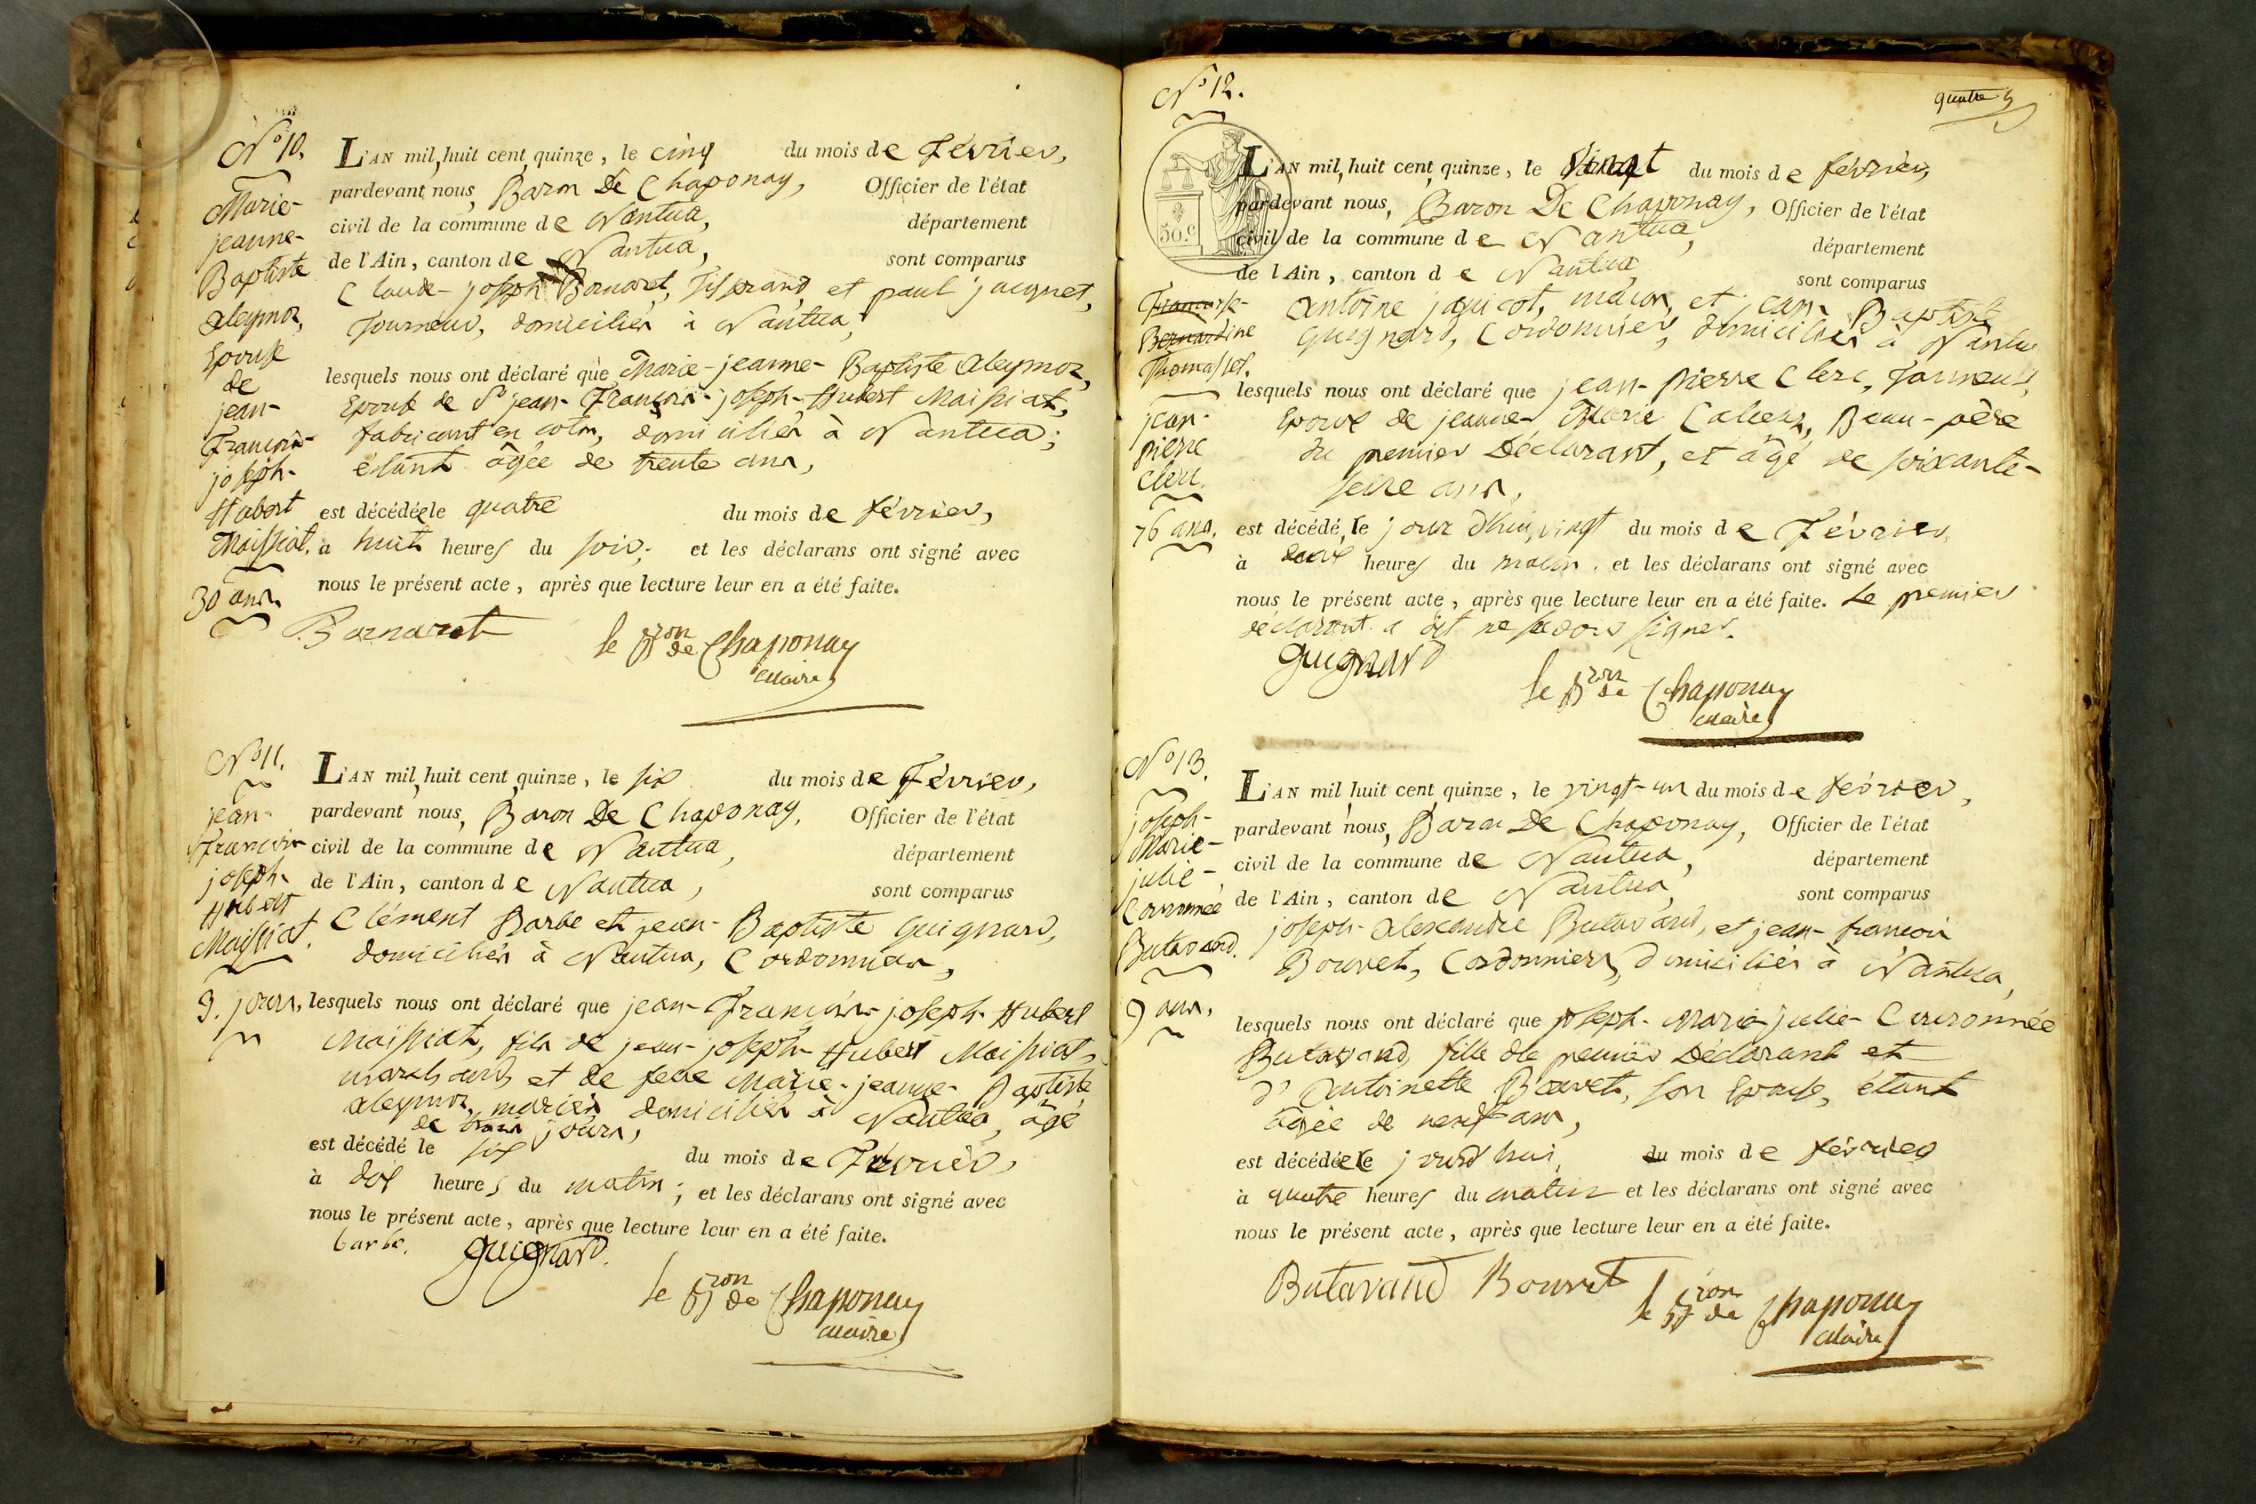 N° 10.
Marie-
jeanne-
Baptiste
aleymoz,
Epouse
de
jean-
françois-
joseph-
Hubert
Maissiat.
30 ans.
L'AN mil huit cent quinze, le cinq du mois de février,
pardevant nous, Baron De Chaponay, Officier de l'état
civil de la commune de Nantua, département
de l'Ain, canton de Nantua, sont comparus
Claude-joseph et paul jacquet,
Tourneur, domiciliés à Nantua,
lesquels nous ont déclaré que Marie-jeanne-Baptiste aleymoz,
Epouse de Sr jean-François-joseph-Hubert Maissiat,
fabricant en coton, domiciliés à Nantua;
étant âgée de trente ans,
est décédée le quatre du mois de février,
à huit heures du soir; et les déclarans ont signé avec
nous le présent acte, après que lecture leur en a été faite.
Barnaret
le Bron de Chaponay
maire
N° 11.
jean-
françois-
joseph-
Hubert
Maissiat.
3. jours,
L'AN mil huit cent quinze, le six du mois de février,
pardevant nous, Baron De Chaponay, Officier de l'état
civil de la commune de Nantua, département
de l'Ain, canton de Nantua, sont comparus
Clément Barbe et jean-Baptiste guignard,
domiciliés à Nantua, Cordonniers,
lesquels nous ont déclaré que jean-François-joseph-Hubert
Maissiat, fils de jean-joseph-Hubert Maissiat,
marchand et de feue Marie-jeanne-Baptiste
aleymoz, mariés domiciliés à Nantua, âgé
de trois jours,
est décédé le six du mois de Février,
à dix heures du matin; et les déclarans ont signé avec
nous le présent acte, après que lecture leur en a été faite.
barbe. guignard.
le Bron de Chaponay
maire
quatre
N° 12.
50.c
Françoise-
Bernardine
Thomasset.
jean-
pierre
Clerc.
76 ans.
L'AN mil huit cent quinze, le vingt du mois de février,
pardevant nous, Baron De Chaponay, Officier de l'état
civil de la commune de Nantua, département
de l'Ain, canton de Nantua sont comparus
antoine janicot, maçon, et jean-Baptiste
guignard, Cordonnier, domiciliés à Nantua
lesquels nous ont déclaré que jean-pierre Clerc, Tourneur,
Epoux de jeanne-Marie, Beau-père
du premier Déclarant, et âgé de soixante-
seize ans,
est décédé, le jour d'hui, vingt du mois de Février
à heures du matin. et les déclarans ont signé avec
nous le présent acte, après que lecture leur en a été faite. Le premier
déclarant a dit ne savoir signer.
guignard
le Bron de Chaponay
maire
N° 13.
joseph-
Marie-
julie-
Couronnée
Butavand.
9 ans,
L'AN mil huit cent quinze, le vingt-un du mois de février,
pardevant nous, Baron De Chaponay, Officier de l'état
civil de la commune de Nantua, département
de l'Ain, canton de Nantua, sont comparus
joseph-alexandre Butavand, et jean-françois
Bouvet, Cordonniers, domiciliés à Nantua,
lesquels nous ont déclaré que joseph-Marie-julie-Couronnée
Butavand, fille du premier Déclarant et
d'antoinette Bouvet, son Epouse, étant
âgée de neuf ans,
est décédée le jourd'hui, du mois de février
à quatre heures du matin et les déclarans ont signé avec
nous le présent acte, après que lecture leur en a été faite.
Butavand Bouvet
le Bron de Chaponay
Maire